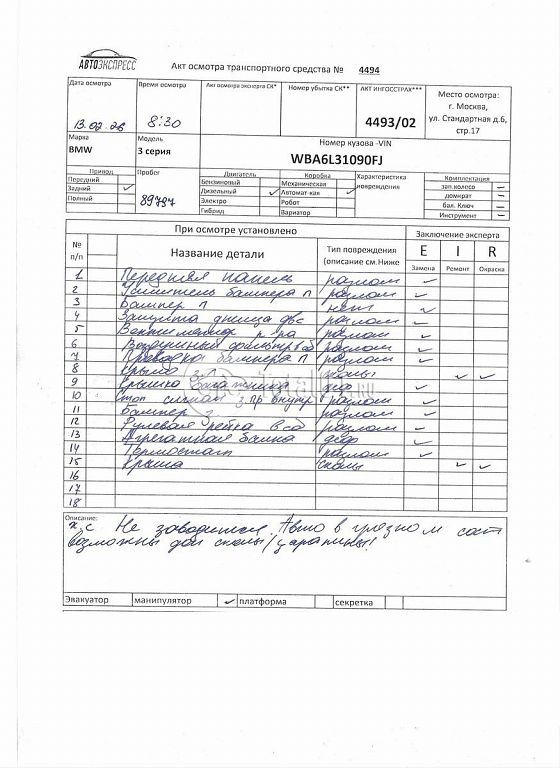 АВТОЭКСПРЕСС
Акт осмотра транспортного средства № 4494
Дата осмотра Время осмотра Акт осмотра эксперта СК* Номер убытка СК** АКТ ИНГОССТРАХ*** Место осмотра:
г. Москва,
13.02.26 8:30 4493/02 ул. Стандартная д.6,
стр.17
Марка Модель Номер кузова -VIN
BMW 3 серия WBA6L31090FJ
Привод Пробег Двигатель Коробка Характеристика Комплектация
Передний Бензиновый Механическая повреждения зап.колесо –
Задний ✓ 89787 Дизельный ✓ Автомат-кая ✓ домкрат –
Полный Электро Робот бал. Ключ –
Гибрид Вариатор Инструмент –
При осмотре установлено Заключение эксперта
№ п/п Название детали Тип повреждения (описание см.Ниже E I R
Замена Ремонт Окраска
1 Передняя панель разлом ✓
2 Усилитель бампера п разлом ✓
3 Бампер п нет ✓
4 Защита днища двс разлом ✓
5 Вентилятор р-ра разлом ✓
6 Воздушный фильтр в сб разлом ✓
7 Проводка бампера п разлом ✓
8 Крыло з л сколы ✓ ✓
9 Крышка багажника деф ✓
10 Стоп сигнал з пр внутр разлом ✓
11 Бампер з разлом ✓
12 Рулевая рейка в сб разлом ✓
13 Агрегатная балка деф ✓
14 Термостат разлом ✓
15 Крыша сколы ✓ ✓
16
17
18
Описание:
х/с Не заводится. Авто в грязном сост
возможны доп сколы/царапины!
Эвакуатор манипулятор ✓ платформа секретка